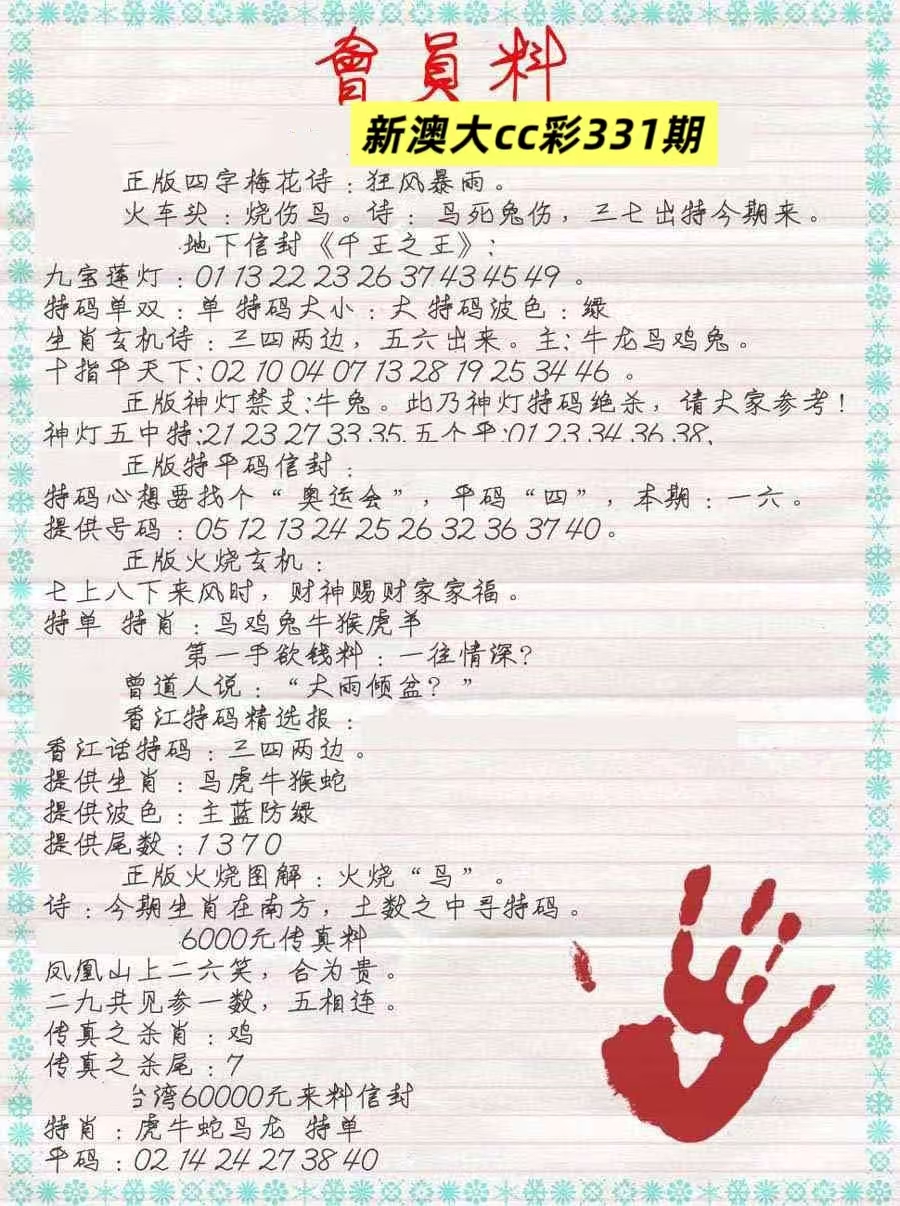 會員料
新澳大cc彩331期
正版四字梅花诗：狂风暴雨。
火车头：烧伤鸟。诗：鸟死兔伤，三七出特今期来。
地下信封《千王之王》：
九宝莲灯：01 13 22 23 26 37 43 45 49 。
特码单双：单 特码大小：大 特码波色：绿
生肖玄机诗：三四两边，五六出来。主：牛龙鸟鸡兔。
十指平天下：02 10 04 07 13 28 19 25 34 46 。
正版神灯禁支：牛兔。此乃神灯特码绝杀，请大家参考！
神灯五中特：21 23 27 33 35. 五个平：01 23 34 36 38.
正版特平码信封：
特码心想要找个“ 奥运会”，平码“四”，本期：一六。
提供号码：05 12 13 24 25 26 32 36 37 40。
正版火烧玄机：
七上八下来风时，财神赐财家家福。
特单 特肖：鸟鸡兔牛猴虎羊
第一手欲钱料：一往情深？
曾道人说：“大雨倾盆？”
香江特码精选报：
香江话特码：三四两边。
提供生肖：鸟虎牛猴蛇
提供波色：主蓝防绿
提供尾数：1 3 7 0
正版火烧图解：火烧“鸟”。
诗：今期生肖在南方，土数之中寻特码。
6000元传真料
凤凰山上二六笑，合为贵。
二九共见参一数，五相连。
传真之杀肖：鸡
传真之杀尾：7
台湾60000元来料信封
特肖：虎牛蛇鸟龙 特单
平码：02 14 24 27 38 40